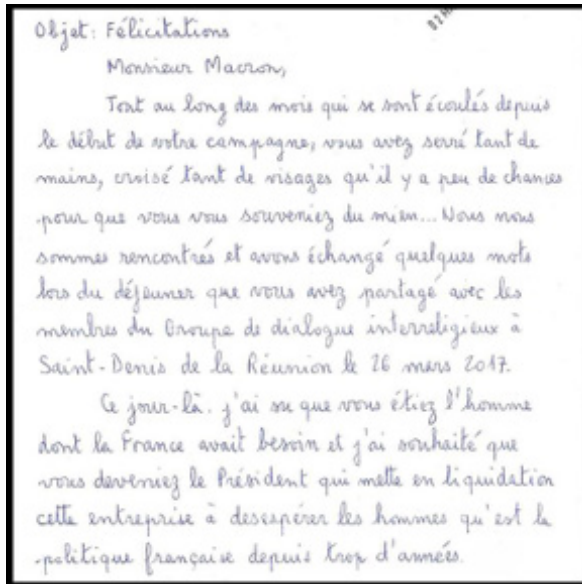 Objet: Félicitations
Monsieur Macron,
Tout au long des mois qui se sont écoulés depuis
le début de votre campagne, vous avez serré tant de
mains, croisé tant de visages qu'il y a peu de chances
pour que vous vous souveniez du mien... Nous nous
sommes rencontrés et avons échangé quelques mots
lors du déjeuner que vous avez partagé avec les
membres du Groupe de dialogue interreligieux à
Saint-Denis de la Réunion le 26 mars 2017.
Ce jour-là. j'ai su que vous étiez l'homme
dont la France avait besoin et j'ai souhaité que
vous deveniez le Président qui mette en liquidation
cette entreprise à desespérer les hommes qu'est la
politique française depuis trop d'années.